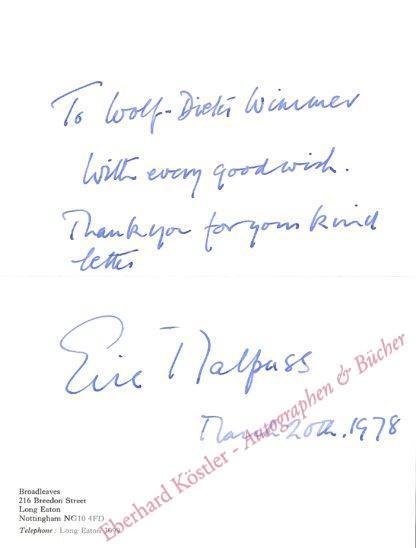 To Wolf-Dieter Wimmer
With every good wish.
Thank you for your kind
letter
Eric Malpass
March 20th. 1978
Eberhard Köstler - Autographen & Bücher
Broadleaves
216 Breedon Street
Long Eaton
Nottingham NG10 4FD
Telephone: Long Eaton